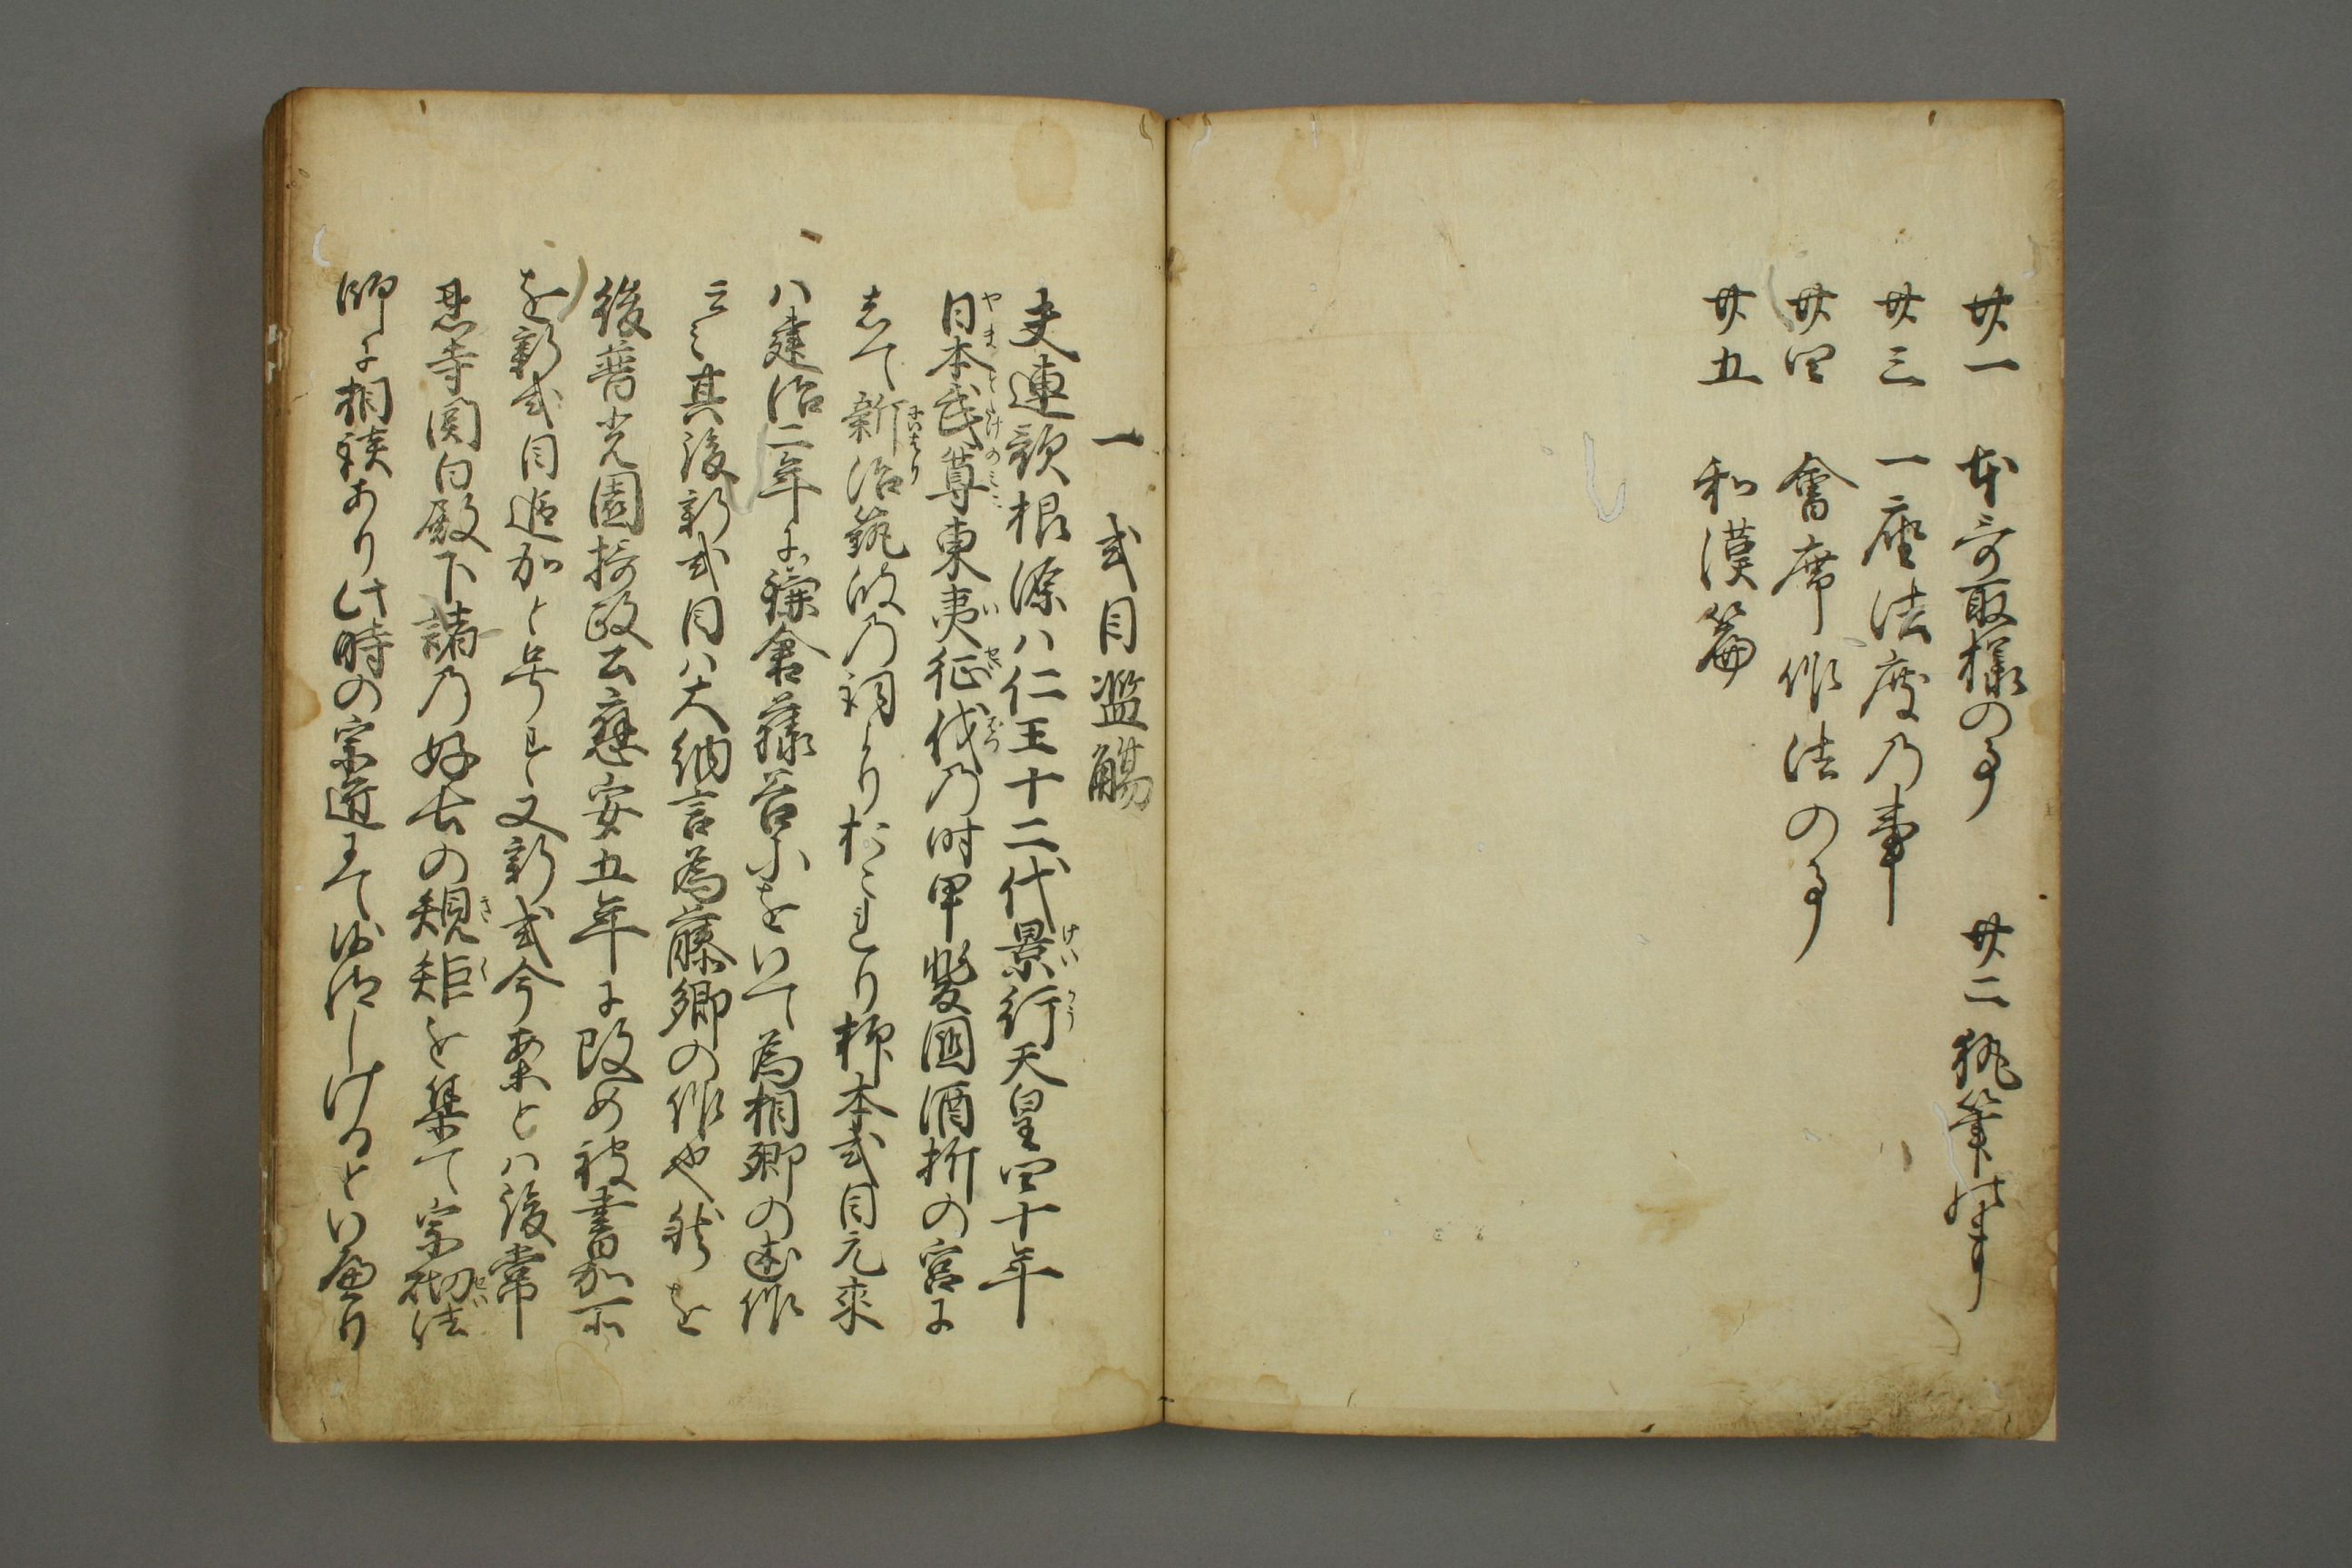 廿一　本哥取様の事　　廿二執筆作法事
廿三　一座法度乃事
廿四　會席作法の事
廿五　和漢篇
一　式目濫觴
夫連歌根源ハ仁王十二代景行天皇四十年
日本武尊東夷征伐乃時甲斐國酒折の宮に
して新治筑波乃詞よりおこれり抑本式目元来
ハ建治二年に鎌倉藤谷にをいて為相卿の述作
云々其後新式目ハ大納言為藤卿の作也然を
後普光園摂政公應安五年に改め被書加所
を新式目追加と号す又新式今案とハ後常
恩寺関白殿下諸乃好士の規矩を集て宗砌法
師に相談あり此時の宗匠にて御沙汰しけるといへり